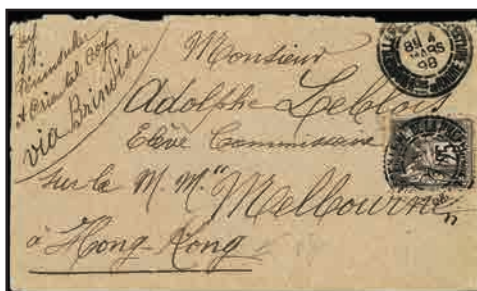 by
S.S.
Peninsular
& Oriental Coy
via Brindisi
Monsieur
Adolphe Leblois
Elève Commissaire
sur le M. M. "Melbourne"
à Hong-Kong
4
MARS
98
25